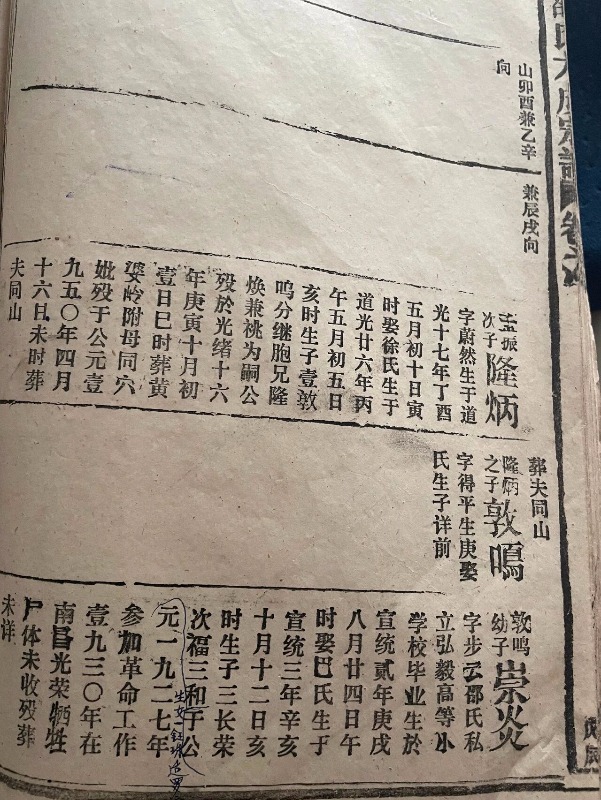 邵氏大成宗譜 卷六
山卯酉兼乙辛
向
兼辰戌向
孟振
次子
隆炳
字蔚然生于道
光十七年丁酉
五月初十日寅
时娶徐氏生于
道光廿六年丙
午五月初五日
亥时生子壹敦
鸣分继胞兄隆
焕兼祧为嗣公
殁於光绪十六
年庚寅十月初
壹日巳时葬黄
婆岭附母同穴
妣殁于公元壹
九五〇年四月
十六日未时葬
夫同山
葬夫同山
隆炳
之子
敦鳴
字得平生庚娶
氏生子详前
敦鸣
幼子
崇炎
字步云邵氏私
立弘毅高等小
学校毕业生於
宣统贰年庚戌
八月廿四日午
时娶巴氏生于
宣统三年辛亥
十月十二日亥
时生子三长荣
次福三和于公
元一九二七年
生女一钰琪适罗
参加革命工作
壹九三〇年在
南昌光荣牺牲
尸体未收殁葬
未详
戊辰